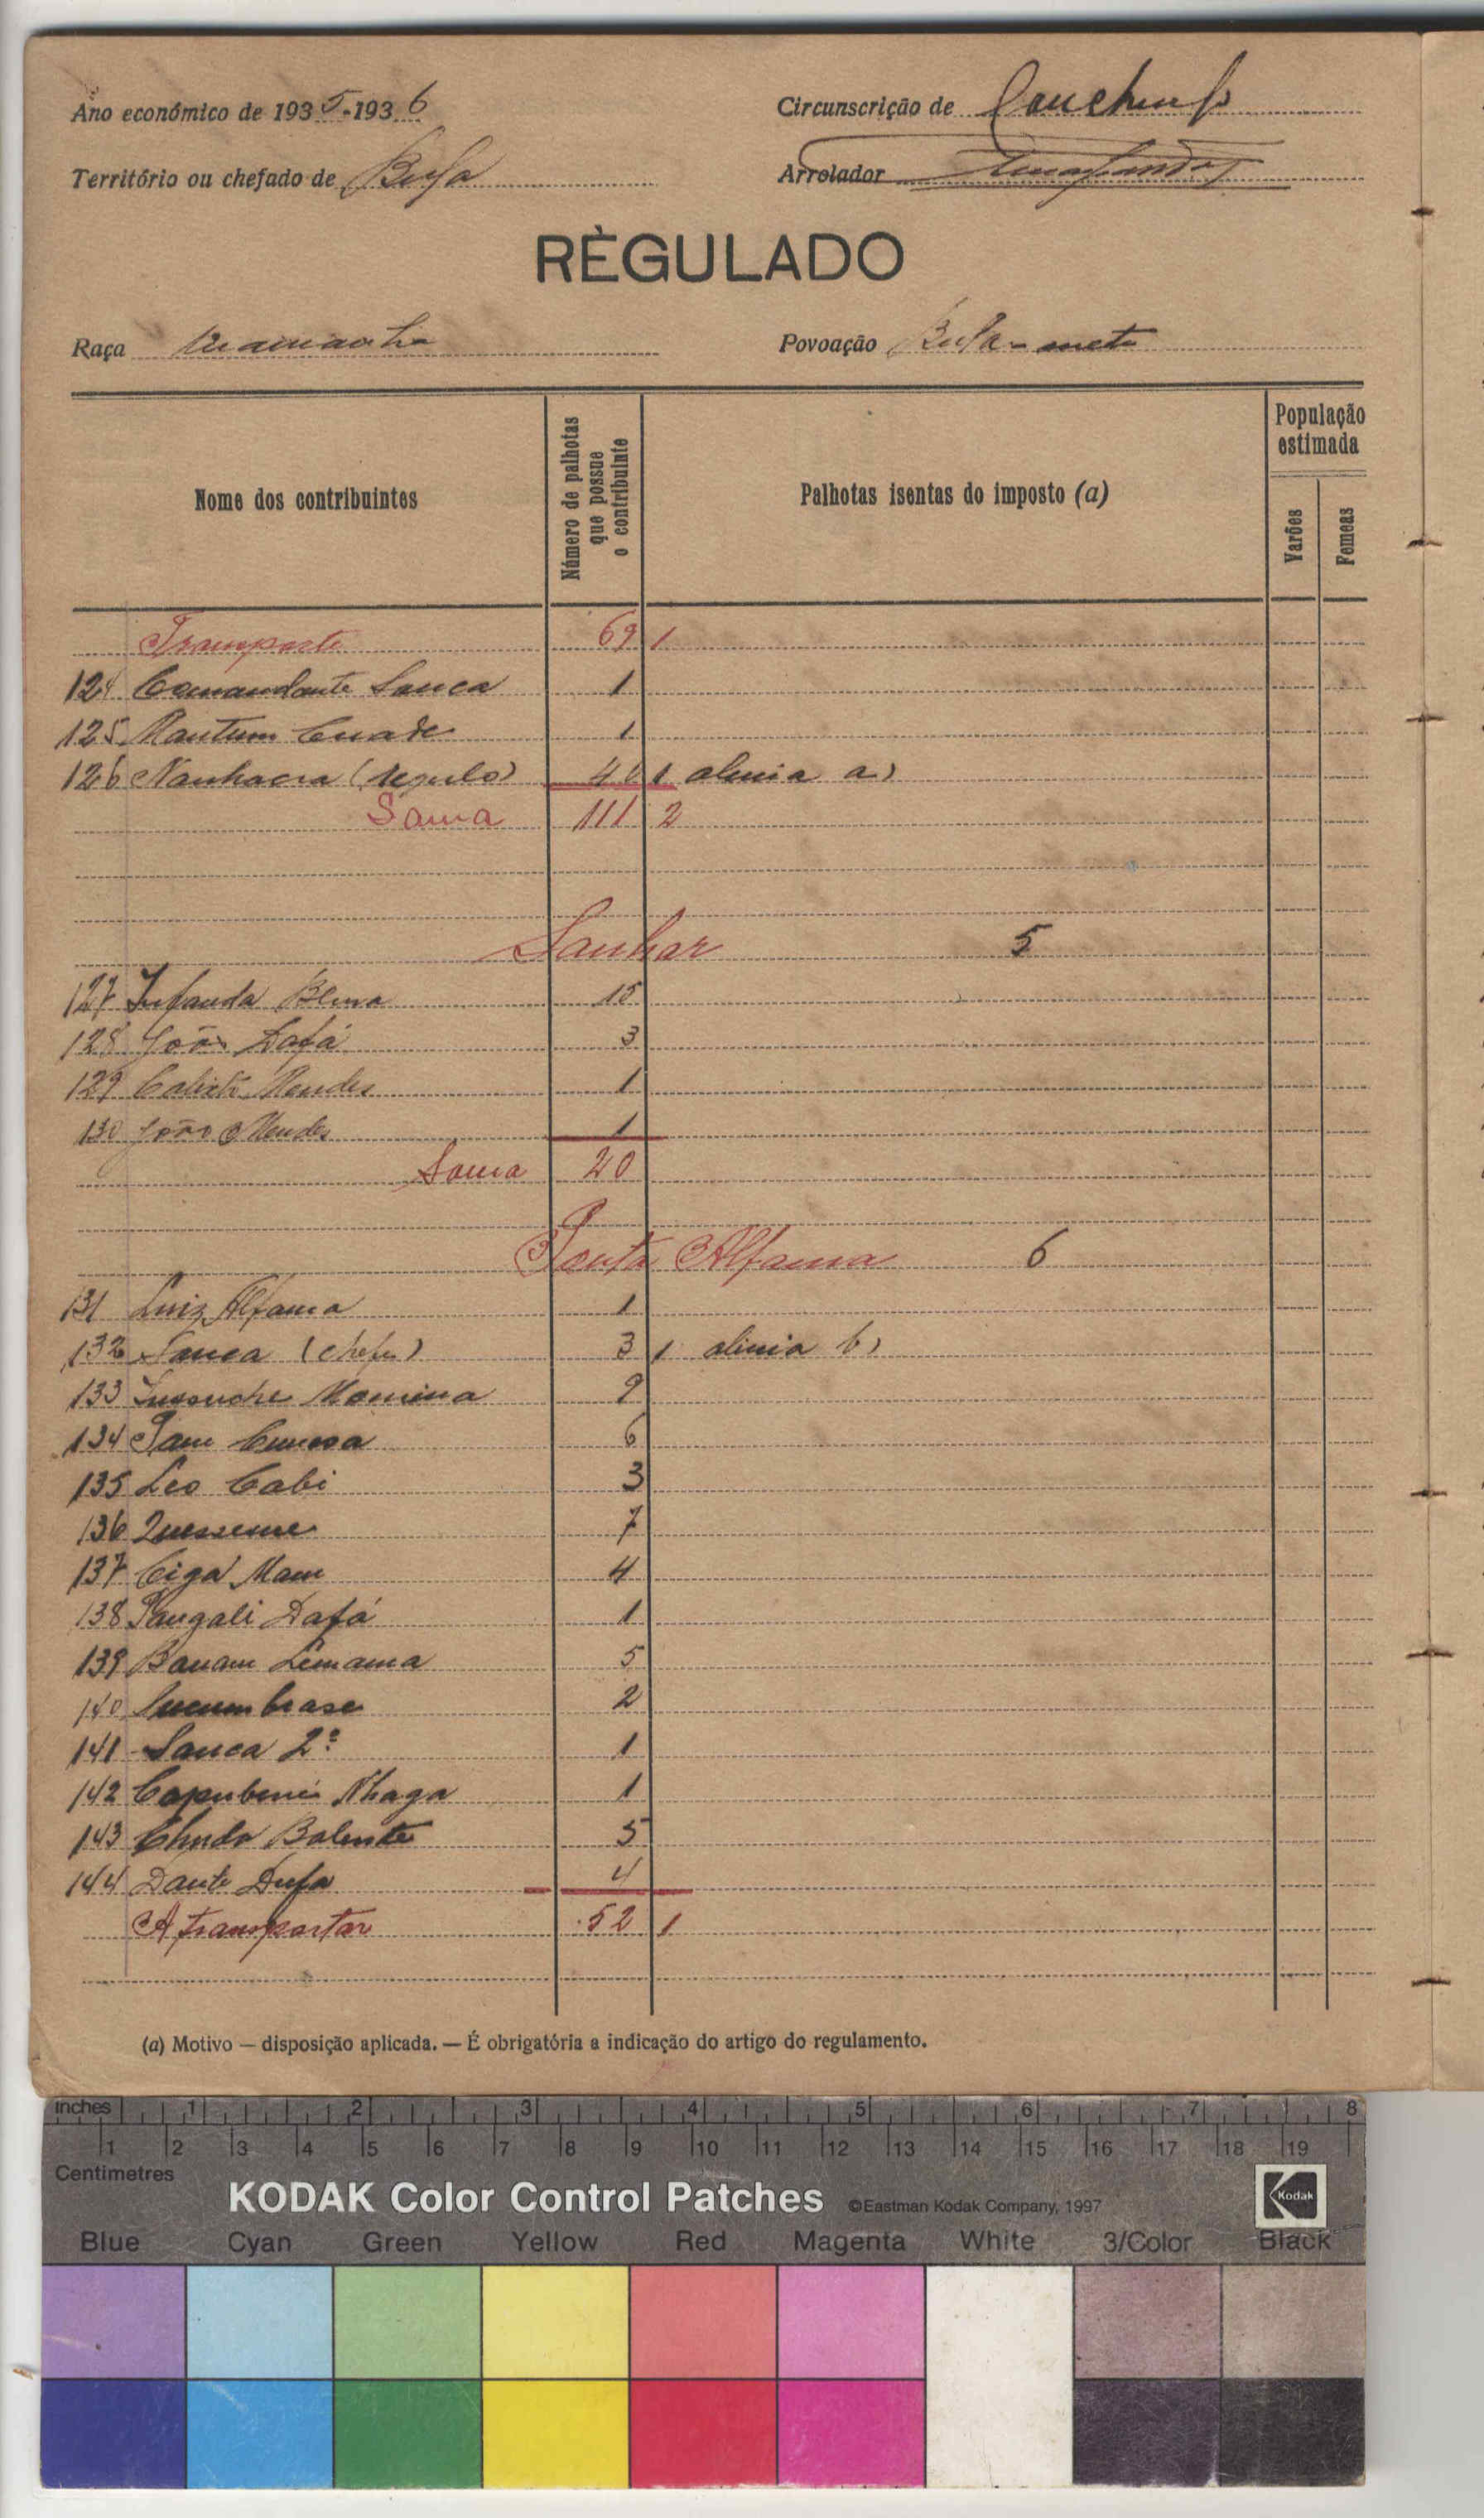 Ano económico de 1935-1936
Circunscrição de
Território ou chefado de Bula
Arrolador
RÈGULADO
Raça
Povoação Bula-mete
Nome dos contribuintes
Número de palhotas que possue o contribuinte
Palhotas isentas do imposto (a)
População estimada
Varões
Femeas
Transporte 69 1
124 Comandante Sanca 1
125 Mantum Cuade 1
126 Nanhacra (régulo) 40 1 alinia a)
Soma 111 2
Sanhar 5
127 Infanda Blena 15
128 João Dafá 3
129 Calixto Mendes 1
130 João Mendes 1
Soma 20
Ponta Alfama 6
131 Luiz Alfama 1
132 Sanca (chefe) 1 alinia b) 3
133 Momina 9
134 6
135 Leo Cabi 3
136 7
137 Ciga Mam 4
138 Pangali Dafá 1
139 Banam Lemama 5
140 2
141 Sanca 2º 1
142 Nhaga 1
143 Chudo Balente 5
144 Dante Dufa 4
A transportar 52 1
(a) Motivo — disposição aplicada. — É obrigatória a indicação do artigo do regulamento.
inches 1 2 3 4 5 6 7 8
1 2 3 4 5 6 7 8 9 10 11 12 13 14 15 16 17 18 19
Centimetres
KODAK Color Control Patches ©Eastman Kodak Company, 1997 Kodak
Blue Cyan Green Yellow Red Magenta White 3/Color Black